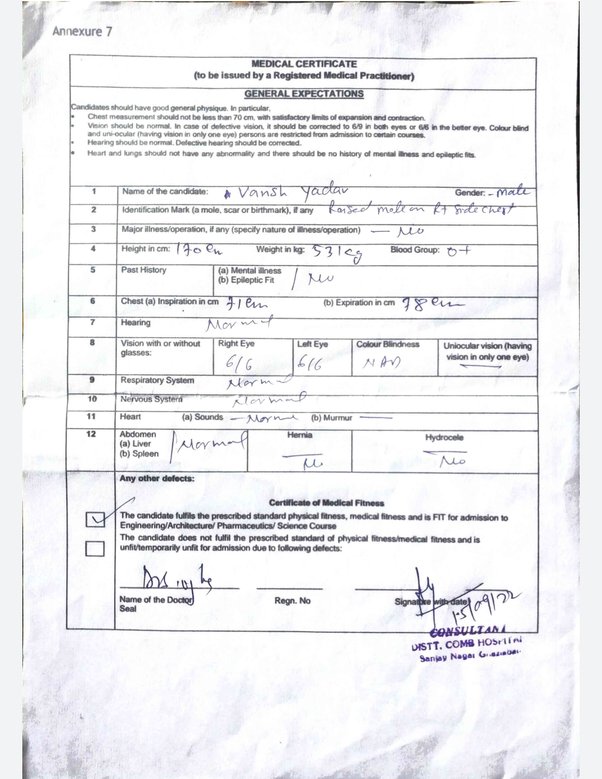 Annexure 7
MEDICAL CERTIFICATE
(to be issued by a Registered Medical Practitioner)
GENERAL EXPECTATIONS
Candidates should have good general physique. In particular.
• Chest measurement should not be less than 70 cm, with satisfactory limits of expansion and contraction.
• Vision should be normal. In case of defective vision, it should be corrected to 6/9 in both eyes or 6/6 in the better eye. Colour blind
and uni-ocular (having vision in only one eye) persons are restricted from admission to certain courses.
• Hearing should be normal. Defective hearing should be corrected.
• Heart and lungs should not have any abnormality and there should be no history of mental illness and epileptic fits.
1 Name of the candidate: Vansh Yadav Gender: - male
2 Identification Mark (a mole, scar or birthmark), if any Raised mole on Rt side chest
3 Major illness/operation, if any (specify nature of illness/operation) — No
4 Height in cm: 170 cm Weight in kg: 53 kg Blood Group: O+
5 Past History (a) Mental illness
(b) Epileptic Fit / No
6 Chest (a) Inspiration in cm 71 cm (b) Expiration in cm 78 cm
7 Hearing Normal
8 Vision with or without glasses: Right Eye Left Eye Colour Blindness Uniocular vision (having vision in only one eye)
6/6 6/6 NAD —
9 Respiratory System Normal
10 Nervous System Normal
11 Heart (a) Sounds — Normal (b) Murmur —
12 Abdomen Hernia Hydrocele
(a) Liver Normal
(b) Spleen No No
Any other defects:
Certificate of Medical Fitness
The candidate fulfils the prescribed standard physical fitness, medical fitness and is FIT for admission to
Engineering/Architecture/ Pharmaceutics/ Science Course
The candidate does not fulfil the prescribed standard of physical fitness/medical fitness and is
unfit/temporarily unfit for admission due to following defects:
Name of the Doctor Regn. No Signature with date)
Seal
15/09/22
CONSULTANT
DISTT. COMB HOSPITAL
Sanjay Nagar Ghaziabad